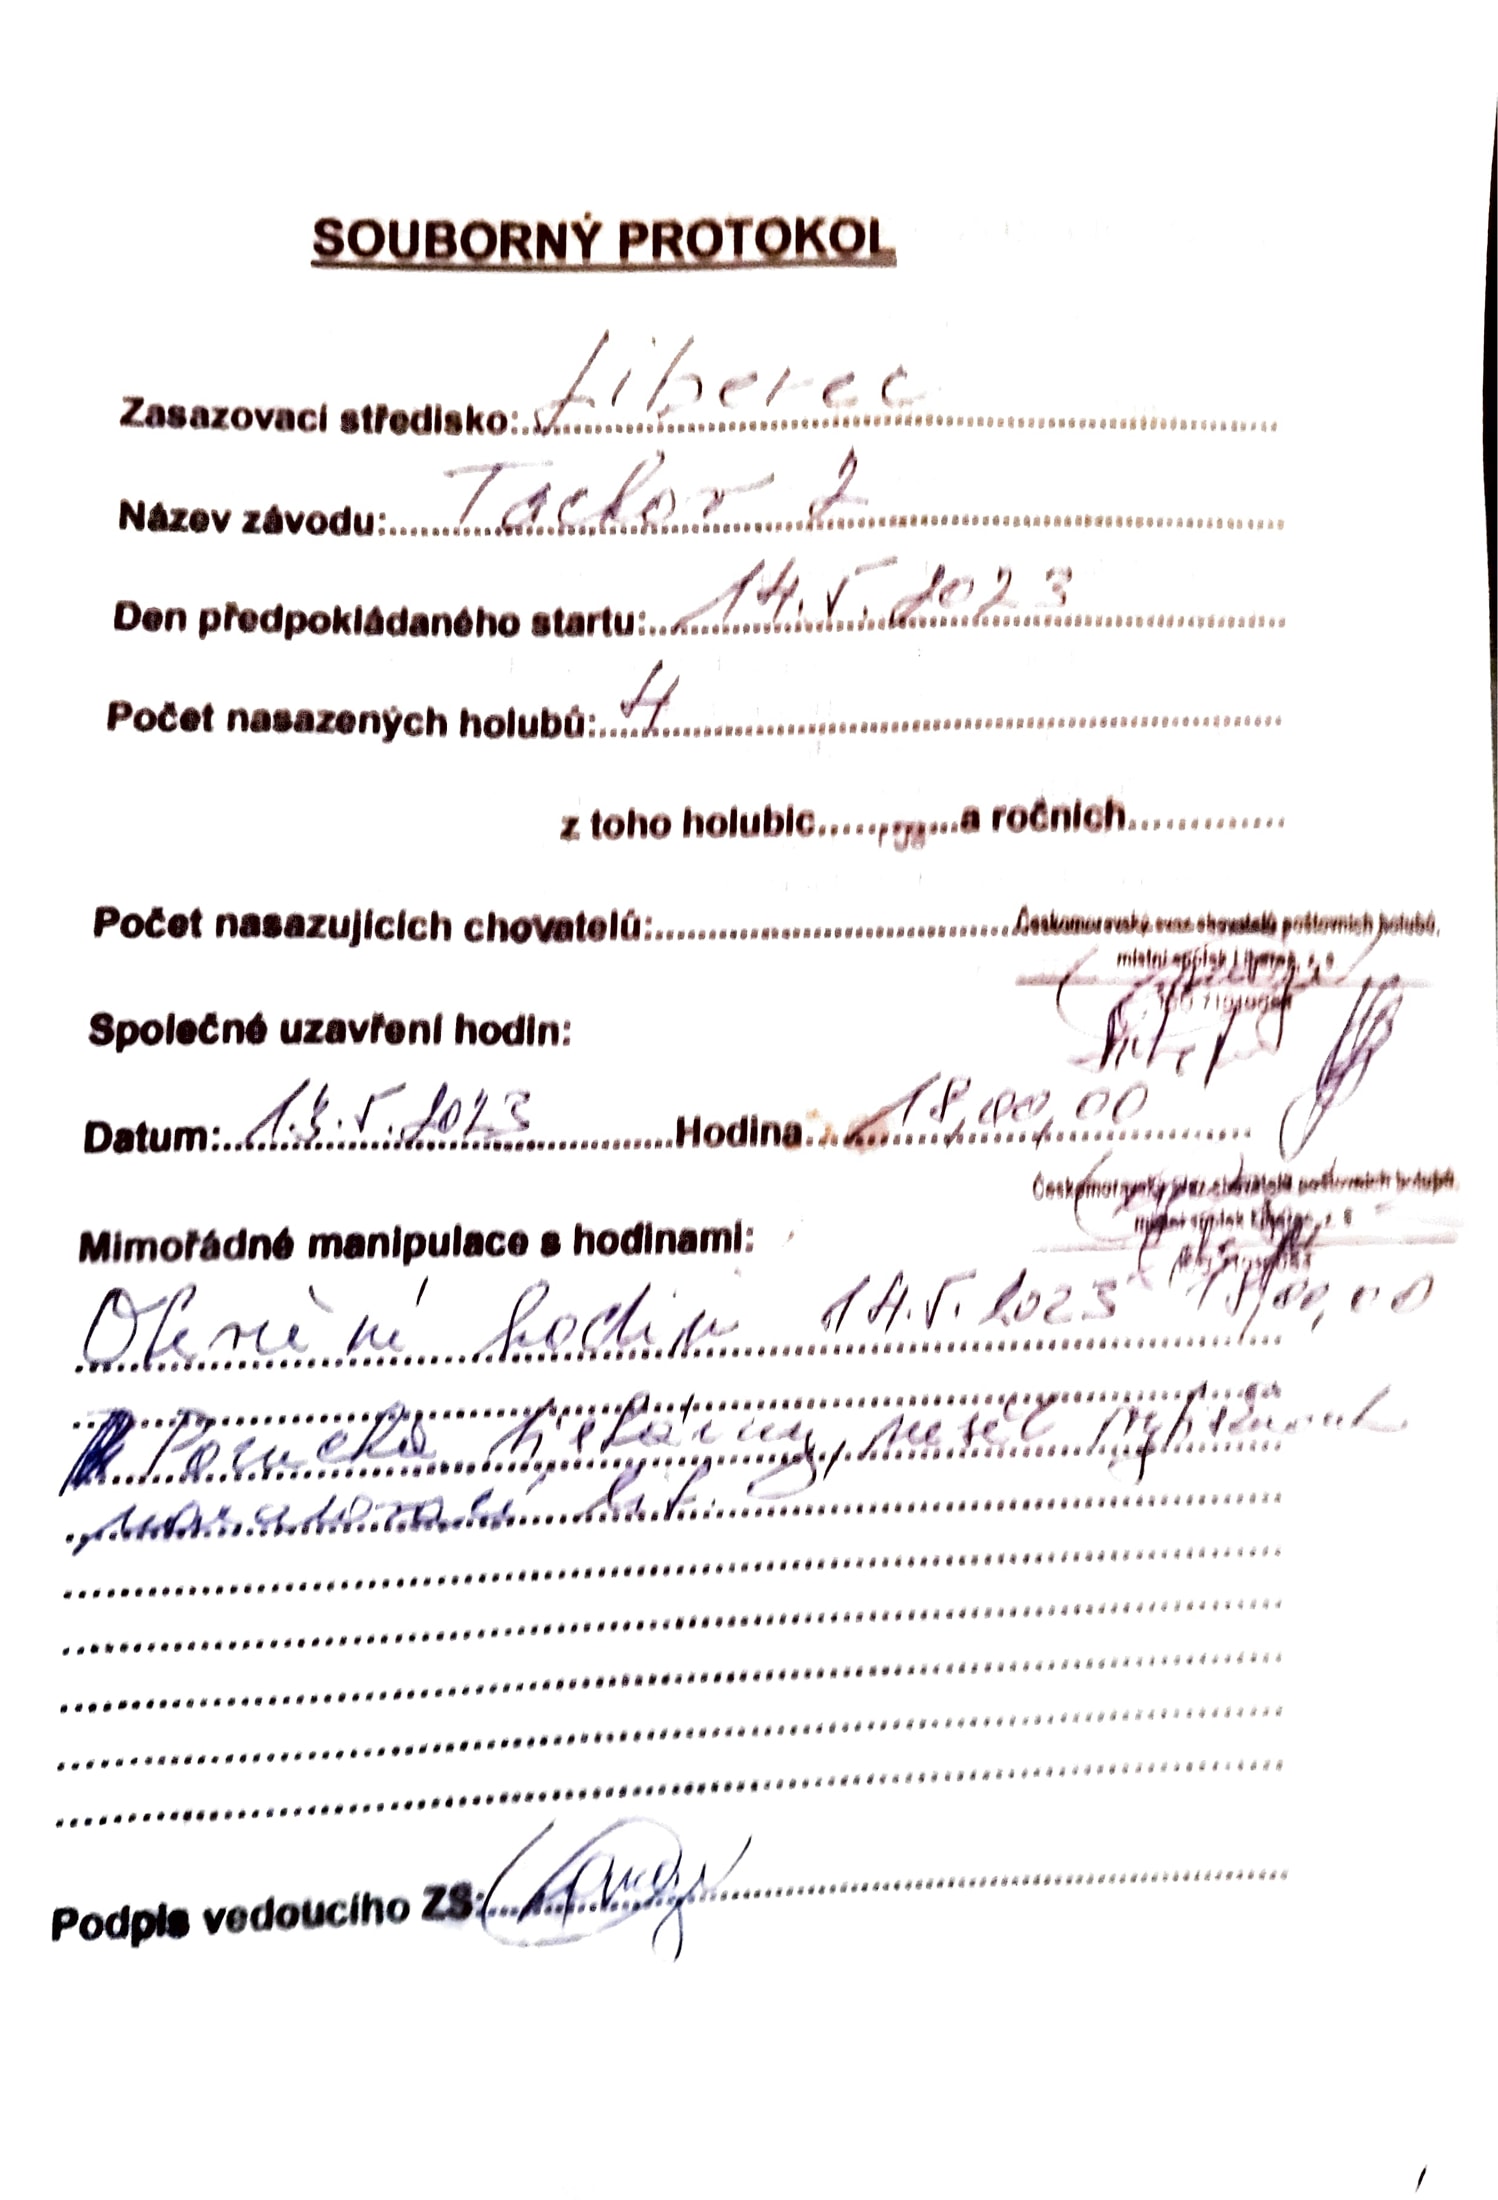 SOUBORNÝ PROTOKOL
Zasazovací středisko: Liberec
Název závodu: Tachov 2
Den předpokládaného startu: 14. V. 2023
Počet nasazených holubů: 4
z toho holubic a ročních
Počet nasazujících chovatelů:
Českomoravský svaz chovatelů poštovních holubů,
místní spolek Liberec, z. s.
Společné uzavření hodin:
Datum: 13. V. 2023 Hodina 18,00,00
Českomoravský svaz chovatelů poštovních holubů,
místní spolek Liberec, z. s.
Mimořádné manipulace s hodinami:
Otevření hodin 14. V. 2023 18,00,00
Porucha tiskárny,
Podpis vedoucího ZS: